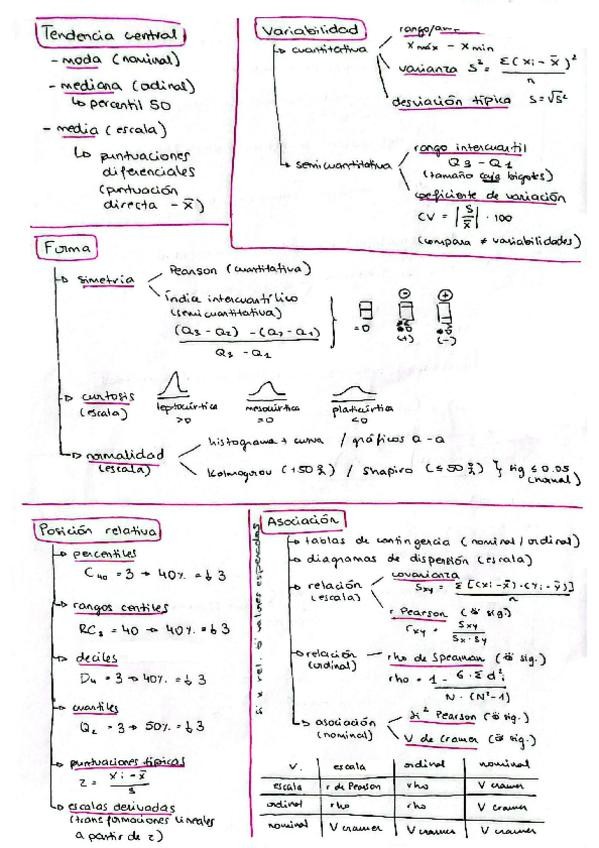 Tendencia central
- moda (nominal)
- mediana (ordinal)
↳ percentil 50
- media (escala)
↳ puntuaciones
diferenciales
(puntuación
directa - x̄)
Variabilidad
cuantitativa
rango/
x máx - x min
varianza S² = Σ(xi - x̄)² / n
desviación típica S = √S²
semicuantitativa
rango intercuartil
Q3 - Q1
(tamaño caja bigotes)
coeficiente de variación
CV = |S / x̄| · 100
(compara ≠ variabilidades)
Forma
simetría
Pearson (cuantitativa)
Índice intercuartílico
(semicuantitativa)
(Q3 - Q2) - (Q2 - Q1) / Q3 - Q1
=0
(+)
(-)
curtosis
(escala)
leptocúrtica
>0
mesocúrtica
=0
platicúrtica
<0
normalidad
(escala)
histograma + curva / gráficos Q-Q
Kolmogrov (+50) / Shapiro (≤50) } sig ≤ 0.05
(normal)
Posición relativa
percentiles
C40 = 3 → 40% = ↓ 3
rangos centiles
RC3 = 40 → 40% = ↓ 3
deciles
D4 = 3 → 40% = ↓ 3
cuartiles
Q2 = 3 → 50% = ↓ 3
puntuaciones típicas
z = xi - x̄ / s
escalas derivadas
(transformaciones lineales
a partir de z)
Asociación
valores esperados
tablas de contingencia (nominal/ordinal)
diagramas de dispersión (escala)
relación
(escala)
covarianza
Sxy = Σ[(xi - x̄)·(yi - ȳ)] / n
r Pearson (sig.)
rxy = Sxy / Sx · Sy
relación
(ordinal)
rho de Spearman (sig.)
rho = 1 - 6·Σd²i / N·(N²-1)
asociación
(nominal)
Ji² Pearson (sig.)
V de Cramer (sig.)
V. escala ordinal nominal
escala r de Pearson rho V cramer
ordinal rho rho V Cramer
nominal V cramer V Cramer V Cramer